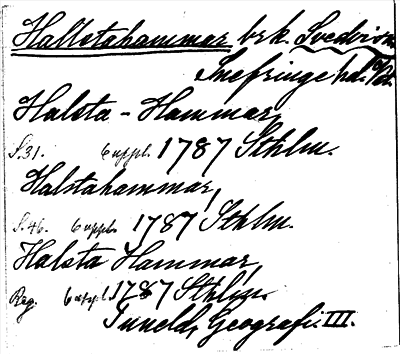 Hallstahammar brk. Svedvi sn
Snefringe hd. Vstm.
Halsta-Hammar,
S.31. 6 uppl. 1787 Sthlm.
Halstahammar,
S.46. 6 uppl. 1787 Sthlm.
Halsta Hammar,
Reg. 6 uppl. 1787 Sthlm.
Tuneld, Geografi III.